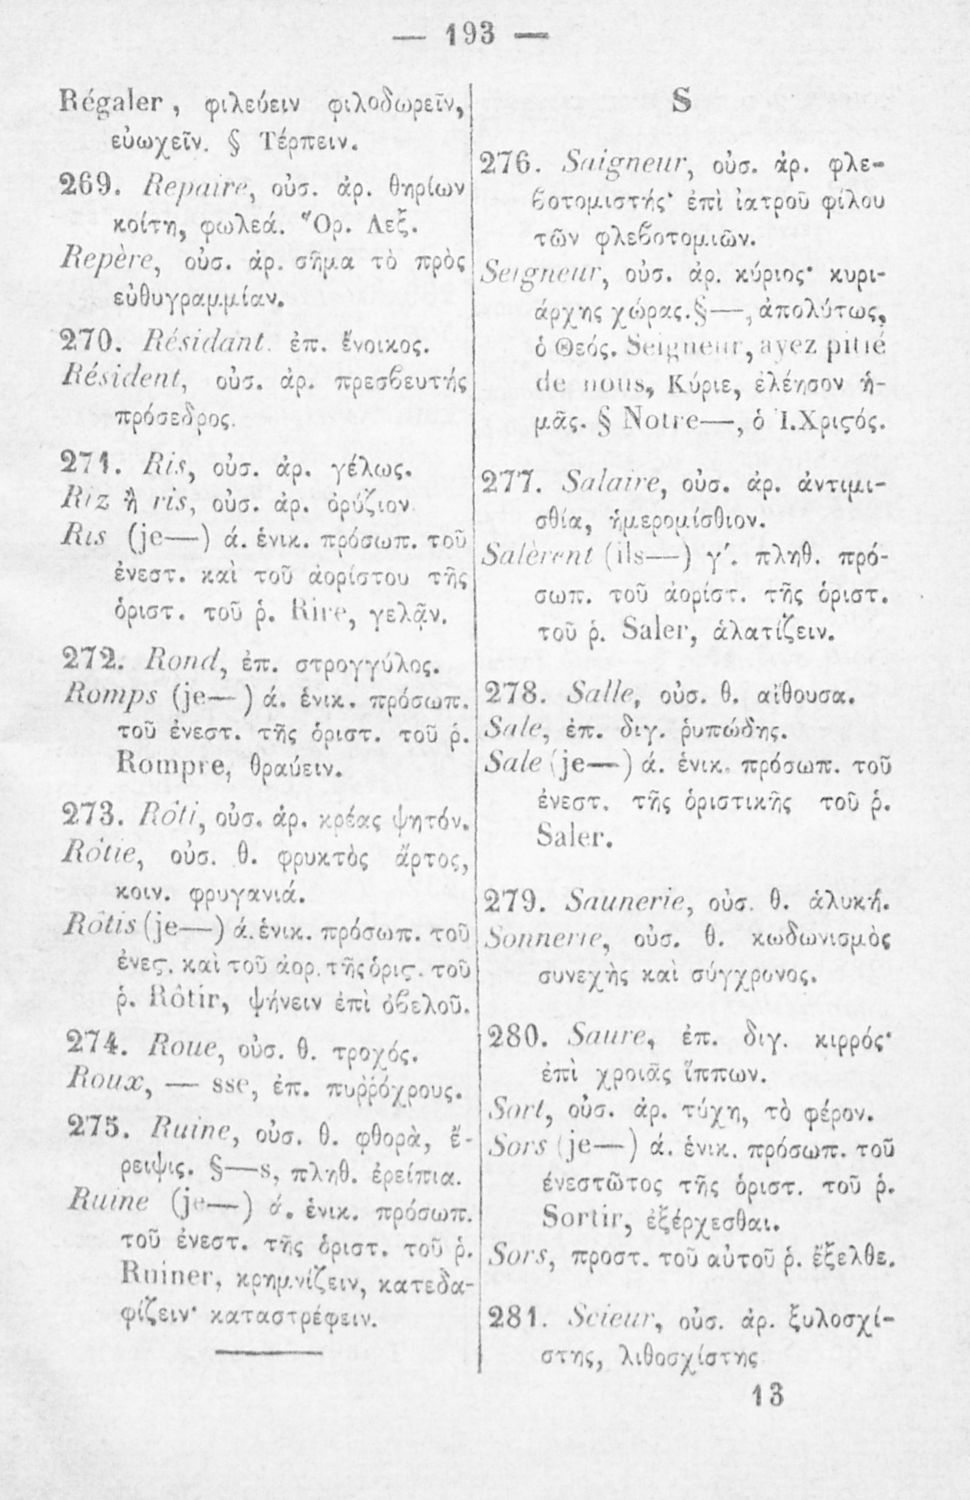 — 193 —
Régaler, φιλεύειν φιλοδωρεῖν,
εὐωχεῖν. § Τέρπειν.
269. Repaire, οὐσ. ἀρ. θηρίων
κοίτη, φωλεά. Ὅρ. Λεξ.
Repère, οὐσ. ἀρ. σῆμα τὸ πρὸς
εὐθυγραμμίαν.
270. Résidant. ἐπ. ἔνοικος.
Résident, οὐσ. ἀρ. πρεσϐευτής
πρόσεδρος.
271. Ris, οὐσ. ἀρ. γέλως.
Riz ἢ ris, οὐσ. ἀρ. ὀρύζιον.
Ris (je—) ά. ἑνικ. πρόσωπ. τοῦ
ἐνεστ. καὶ τοῦ ἀορίστου τῆς
ὁριστ. τοῦ ῥ. Rire, γελᾷν.
272. Rond, ἐπ. στρογγύλος.
Romps (je—) ά. ἑνικ. πρόσωπ.
τοῦ ἐνεστ. τῆς ὁριστ. τοῦ ῥ.
Rompre, θραύειν.
273. Rôti, οὐσ. ἀρ. κρέας ψητόν.
Rôtie, οὐσ. θ. φρυκτὸς ἄρτος,
κοιν. φρυγανιά.
Rôtis (je—) ά. ἑνικ. πρόσωπ. τοῦ
ἐνεϛ. καὶ τοῦ ἀορ. τῆς ὁριϛ. τοῦ
ῥ. Rôtir, ψήνειν ἐπὶ ὀϐελοῦ.
274. Roue, οὐσ. θ. τροχός.
Roux, — sse, ἐπ. πυῤῥόχρους.
275. Ruine, οὐσ. θ. φθορὰ, ἔ-
ρειψις. §—s, πληθ. ἐρείπια.
Ruine (je—) ά. ἑνικ. πρόσωπ.
τοῦ ἐνεστ. τῆς ὁριστ. τοῦ ῥ.
Ruiner, κρημνίζειν, κατεδα-
φίζειν· καταστρέφειν.
S
276. Saigneur, οὐσ. ἀρ. φλε-
ϐοτομιστής· ἐπὶ ἰατροῦ φίλου
τῶν φλεϐοτομιῶν.
Seigneur, οὐσ. ἀρ. κύριος· κυρι-
άρχης χώρας. §—, ἀπολύτως,
ὁ Θεός. Seigneur, ayez pitié
de nous, Κύριε, ἐλέησον ἡ-
μᾶς. § Notre—, ὁ Ἰ. Χριϛός.
277. Salaire, οὐσ. ἀρ. ἀντιμι-
σθία, ἡμερομίσθιον.
Salèrent (ils—) γ΄. πληθ. πρό-
σωπ. τοῦ ἀορίστ. τῆς ὁριστ.
τοῦ ῥ. Saler, ἁλατίζειν.
278. Salle, οὐσ. θ. αἴθουσα.
Sale, ἐπ. διγ. ῥυπώδης.
Sale (je—) ά. ἑνικ. πρόσωπ. τοῦ
ἐνεστ. τῆς ὁριστικῆς τοῦ ῥ.
Saler.
279. Saunerie, οὐσ. θ. ἁλυκή.
Sonnerie, οὐσ. θ. κωδωνισμὸς
συνεχὴς καὶ σύγχρονος.
280. Saure, ἐπ. διγ. κιρρός·
ἐπὶ χροιᾶς ἵππων.
Sort, οὐσ. ἀρ. τύχη, τὸ φέρον.
Sors (je—) ά. ἑνικ. πρόσωπ. τοῦ
ἐνεστῶτος τῆς ὁριστ. τοῦ ῥ.
Sortir, ἐξέρχεσθαι.
Sors, προστ. τοῦ αὐτοῦ ῥ. ἔξελθε.
281. Scieur, οὐσ. ἀρ. ξυλοσχί-
στης, λιθοσχίστης
13